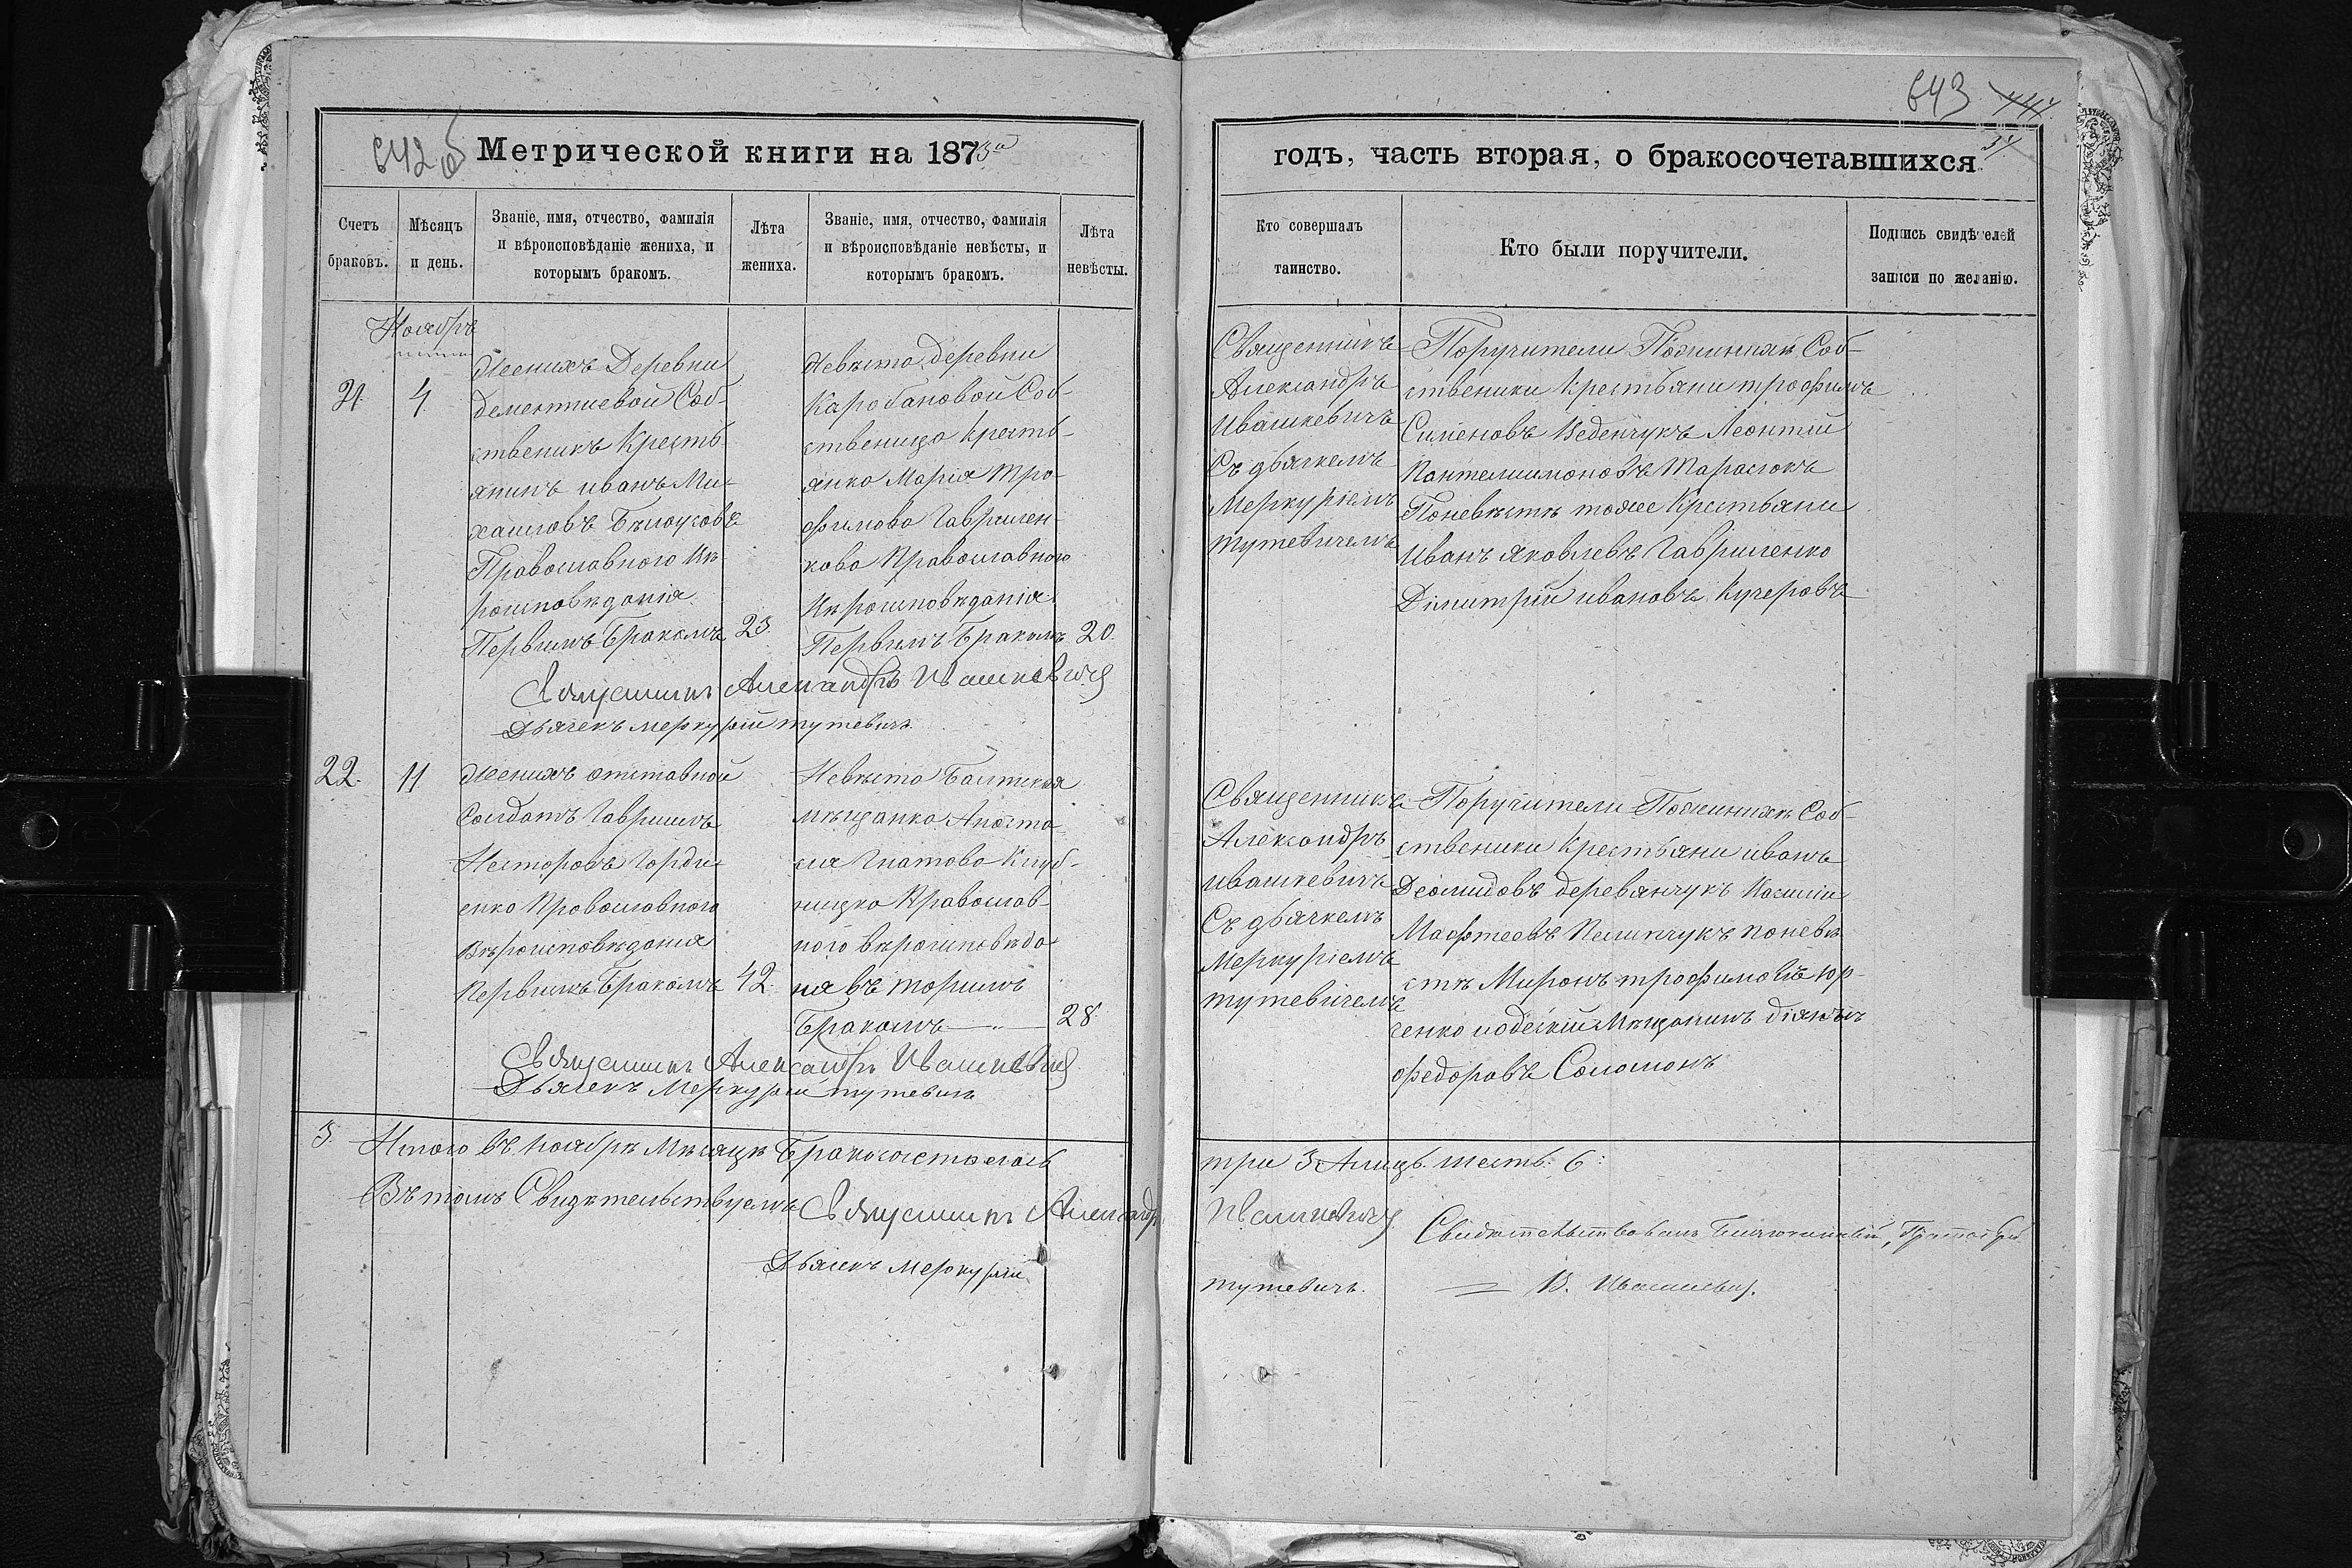 642 об
Метрической книги на 1873й
Счетъ браковъ.
Мѣсяцъ и день.
Званіе, имя, отчество, фамилія
и вѣроисповѣданіе жениха, и
которымъ бракомъ.
Лѣта жениха.
Званіе, имя, отчество, фамилія
и вѣроисповѣданіе невѣсты, и
которымъ бракомъ.
Лѣта невѣсты.
Ноябрь
21. 4.
Женихъ Деревни
дементиевой Соб-
ственикъ Кресть
янинъ иванъ Ми-
хаиловъ
Православного Вѣ-
роисповѣданія
Первимъ Бракомъ 23.
Невѣста деревни
Каробановой Соб-
ственица кресть-
янка Марія Тро-
фимова Гаврилен-
кова Православного
Вѣроисповѣданія
Первимъ Бракомъ 20.
Священникъ Александръ Ивашкевичъ
Дьячекъ Меркурій тутевичъ
22. 11
Женихъ отставной
Солдатъ Гавриилъ
Несторовъ Горди-
енко Православного
Вѣроисповѣдания
Первимъ Бракомъ 42.
Невѣста Балтская
мѣщанка Апоста
сия Гнатова Клуб-
ницка Православ-
ного вѣроисповѣда-
ния въ торимъ
Бракомъ 28
Священникъ Александръ Ивашкевичъ
Дьячекъ Меркурій тутевичъ
3. Итого въ ноябрѣ Мѣсяцѣ Бракосостоялось
Въ томъ Свидѣтельствуемъ Священникъ Александръ
Дьячекъ Меркурій
643
34
годъ, часть вторая, о бракосочетавшихся
Кто совершалъ таинство.
Кто были поручители.
Подпись свидѣтелей
записи по желанію.
Священникъ
Александръ
Ивашкевичъ
Съ дьячкемъ
Меркуріемъ
тутевичемъ
Поручители Поженихѣ Соб-
ственики Крестьяни трофимъ
Сименовъ Веденчукъ Леонтій
Пантелиимоновъ Тарасюкъ
Поневѣстѣ тоже Крестьяни
Иванъ яковлевъ Гавриленко
Димитрій ивановъ Кучеровъ
Священникъ
Александръ
ивашкевичъ
Съ дьячкемъ
Меркуріемъ
тутевичемъ
Поручители Поженихѣ Соб-
ственики Крестьяни иванъ
Деомидовъ деревянчукъ
Мафтеевъ Пелипчукъ поневѣ-
стѣ Миронъ трофимовъ юр-
ченко иодескій Мѣщанинъ
федоровъ Соломонъ
три 3. Алицъ. шесть: 6:
Ивашкевичъ
тутевичъ.
Свидѣтельствовалъ
В. Ивашкевичъ.